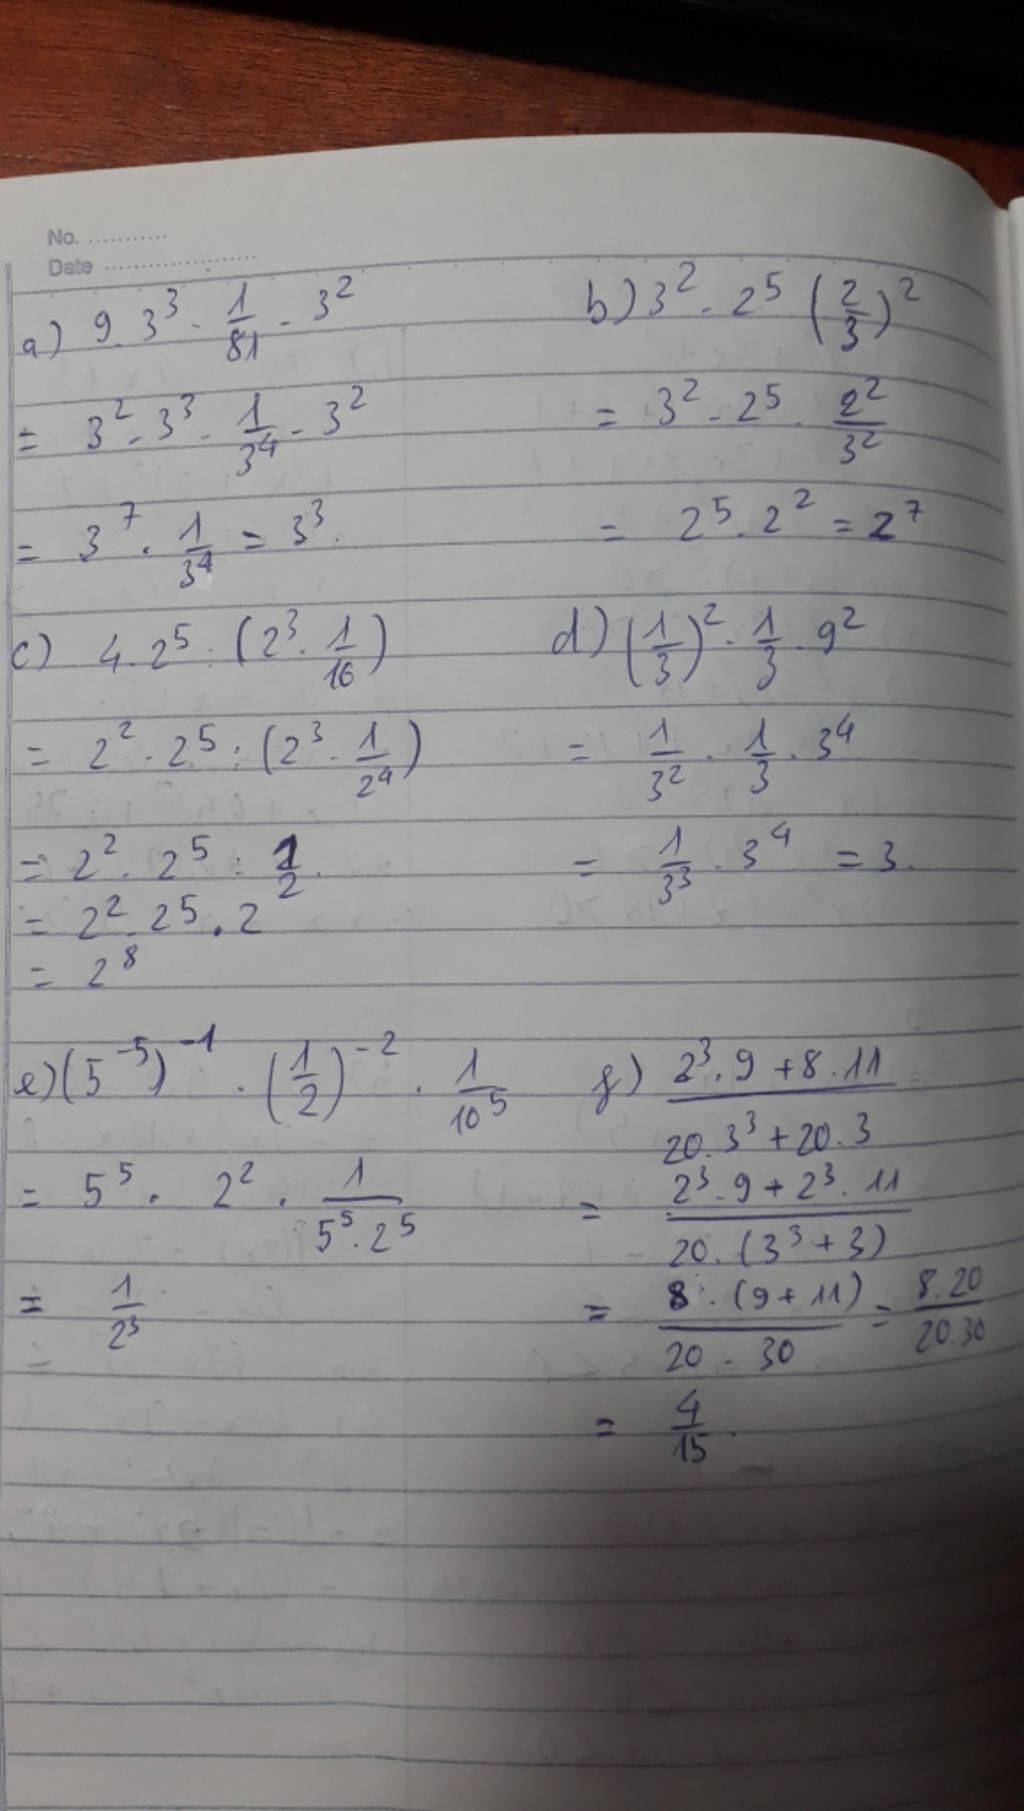 No. ...........
Date ......................
a) 9 . 3³ . 1/81 . 3²
= 3² . 3³ . 1/3⁴ . 3²
= 3⁷ . 1/3⁴ = 3³.
b) 3² . 2⁵ (2/3)²
= 3² . 2⁵ . 2²/3²
= 2⁵ . 2² = 2⁷
c) 4 . 2⁵ : (2³ . 1/16)
= 2² . 2⁵ : (2³ . 1/2⁴)
= 2² . 2⁵ : 1/2.
= 2² . 2⁵ . 2
= 2⁸
d) (1/3)² . 1/3 . 9²
= 1/3² . 1/3 . 3⁴
= 1/3³ . 3⁴ = 3.
e) (5⁻⁵)⁻¹ . (1/2)⁻² . 1/10⁵
= 5⁵ . 2² . 1/(5⁵ . 2⁵)
= 1/2³
f) (2³ . 9 + 8 . 11)/(20 . 3³ + 20 . 3)
= (2³ . 9 + 2³ . 11)/(20 . (3³ + 3))
= (8 . (9 + 11))/(20 . 30) = (8 . 20)/(20 . 30)
= 4/15.